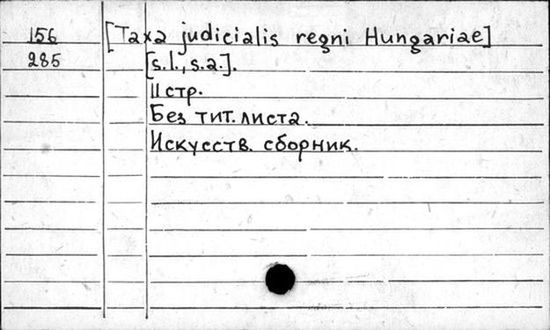 156 [Taxa judicialis regni Hungariae]
285 [s.l., s.a.].
11 стр.
Без тит. листа.
Искусств. сборник.